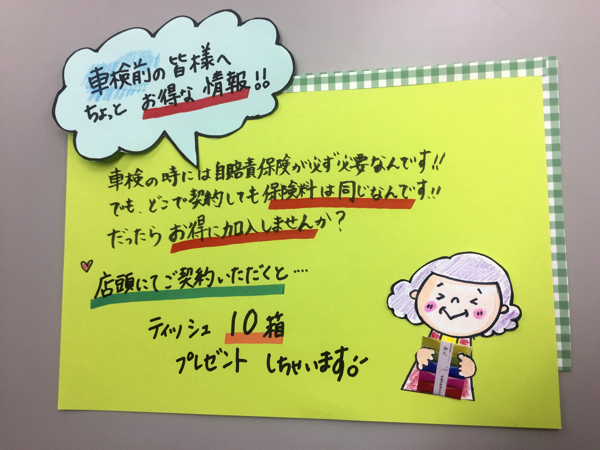 車検前の皆様へ
ちょっと お得な 情報!!
車検の時には自賠責保険が必ず必要なんです!!
でも、どこで契約しても保険料は同じなんです!!
だったら お得に加入しませんか?
店頭にてご契約いただくと‥‥
ティッシュ 10箱
プレゼント しちゃいます!!